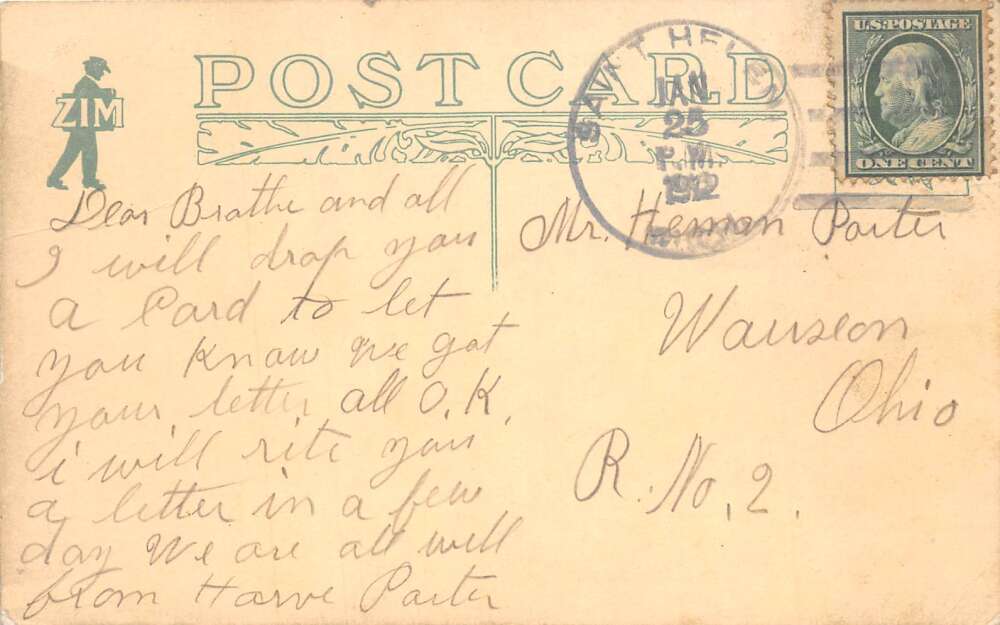 POST CARD
ZIM
SAINT HELEN
JAN
25
P.M.
1912
U.S. POSTAGE
ONE CENT
Dear Brothe and all
I will drop you
a Card to let
you know we got
your letter all O.K.
i will rite you
a letter in a few
day We are all well
from Harve Porter
Mr. Heman Porter
Wauseon
Ohio
R. No. 2.